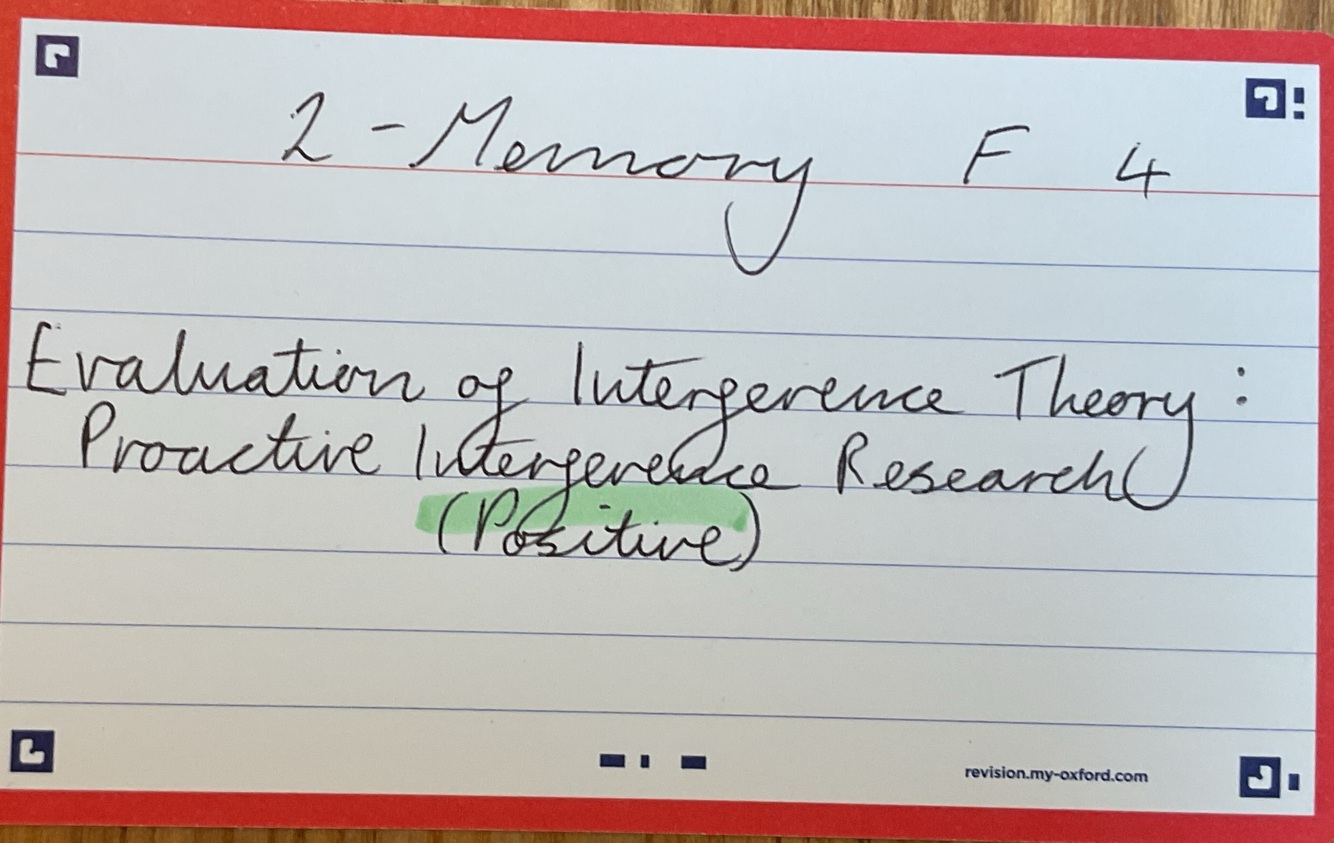 2 - Memory F 4
Evaluation of Interference Theory:
Proactive Interference Research
(Positive)
revision.my-oxford.com